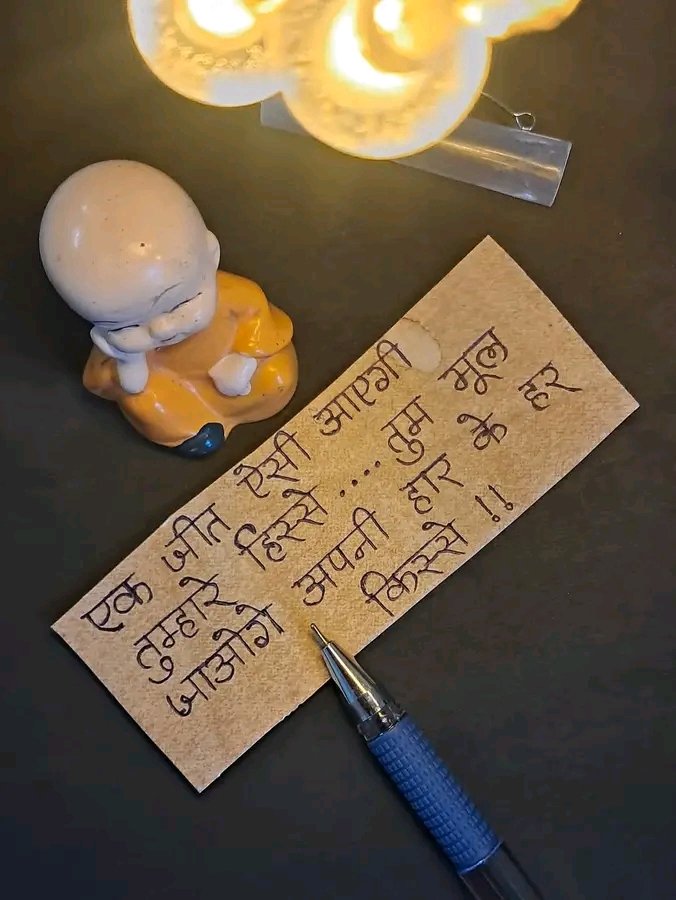 एक जीत ऐसी आएगी
तुम्हारे हिस्से .... तुम भूल
जाओगे अपनी हार के हर
किस्से !!